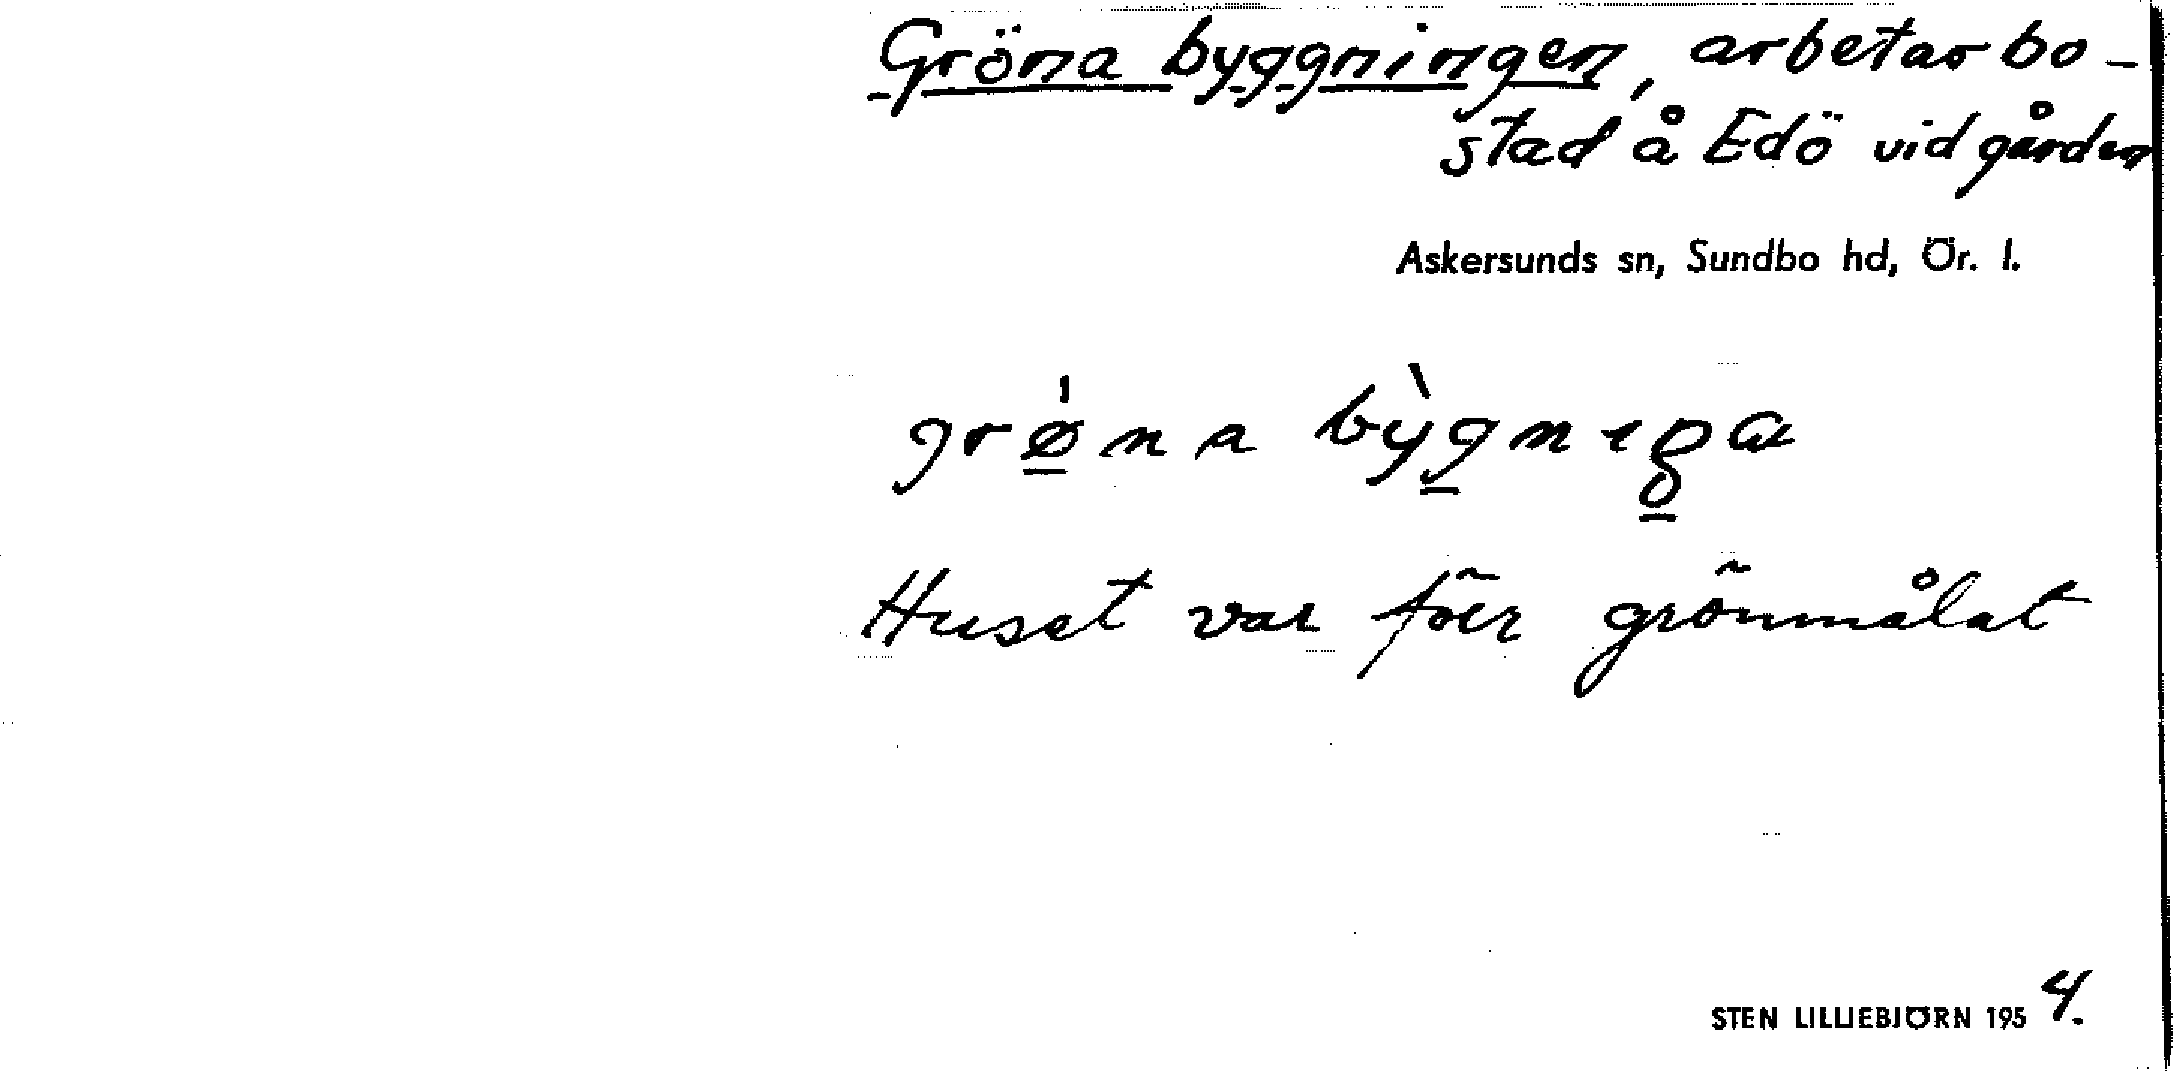 Gröna byggningen, arbetarbo-
stad å Edö vid gården
Askersunds sn, Sundbo hd, Ör. l.
grǿ̠na
Huset var förr grönmålat
STEN LILLIEBJÖRN 1954.